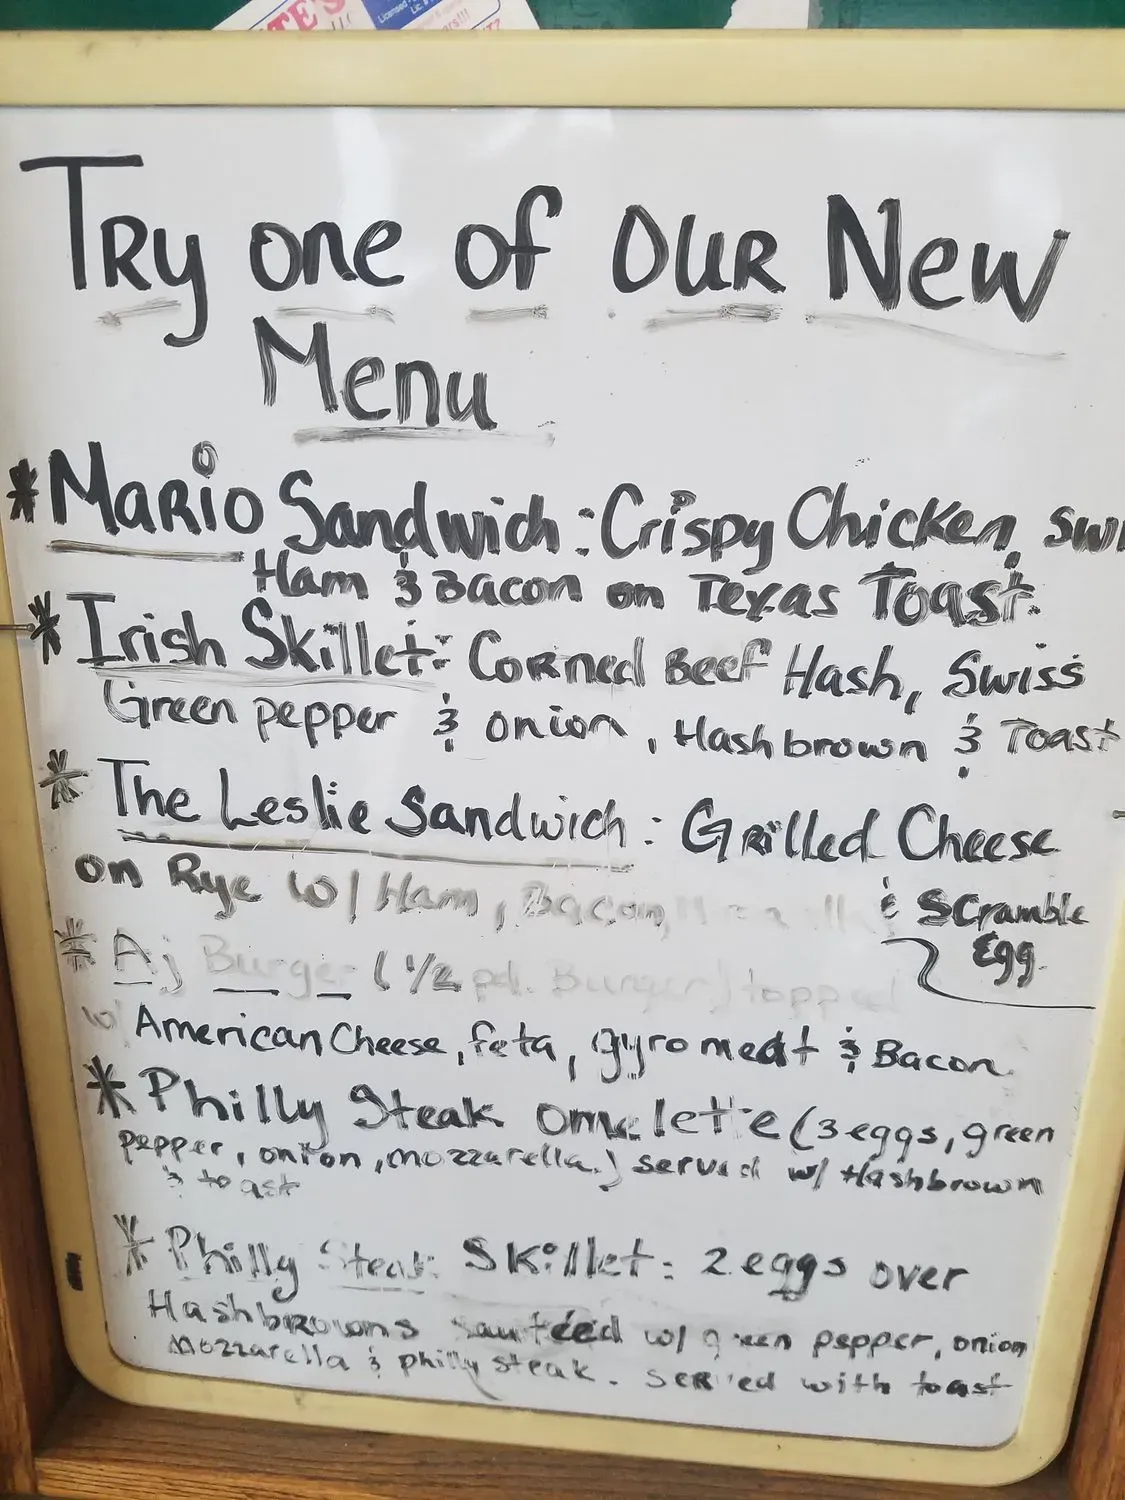 TE'S
Licensed
TRy one of OUR New
Menu
* MaRio Sandwich: Crispy Chicken, Swi
Ham & Bacon on Texas Toast.
* Irish Skillet: Corned Beef Hash, Swiss
Green pepper & onion, Hashbrown & Toast
* The Leslie Sandwich: GRilled Cheese
on Rye w/ Ham, Bacon, & Scramble
Egg.
* Aj Burger (1/2 pd. Burger) topped
w/ American Cheese, feta, gyro meat & Bacon.
* Philly Steak omelette (3 eggs, green
pepper, onion, mozzarella.) served w/ Hashbrown
& toast
* Philly Steak Skillet: 2 eggs over
Hashbrowns sautéed w/ green pepper, onion
Mozzarella & philly steak. served with toast